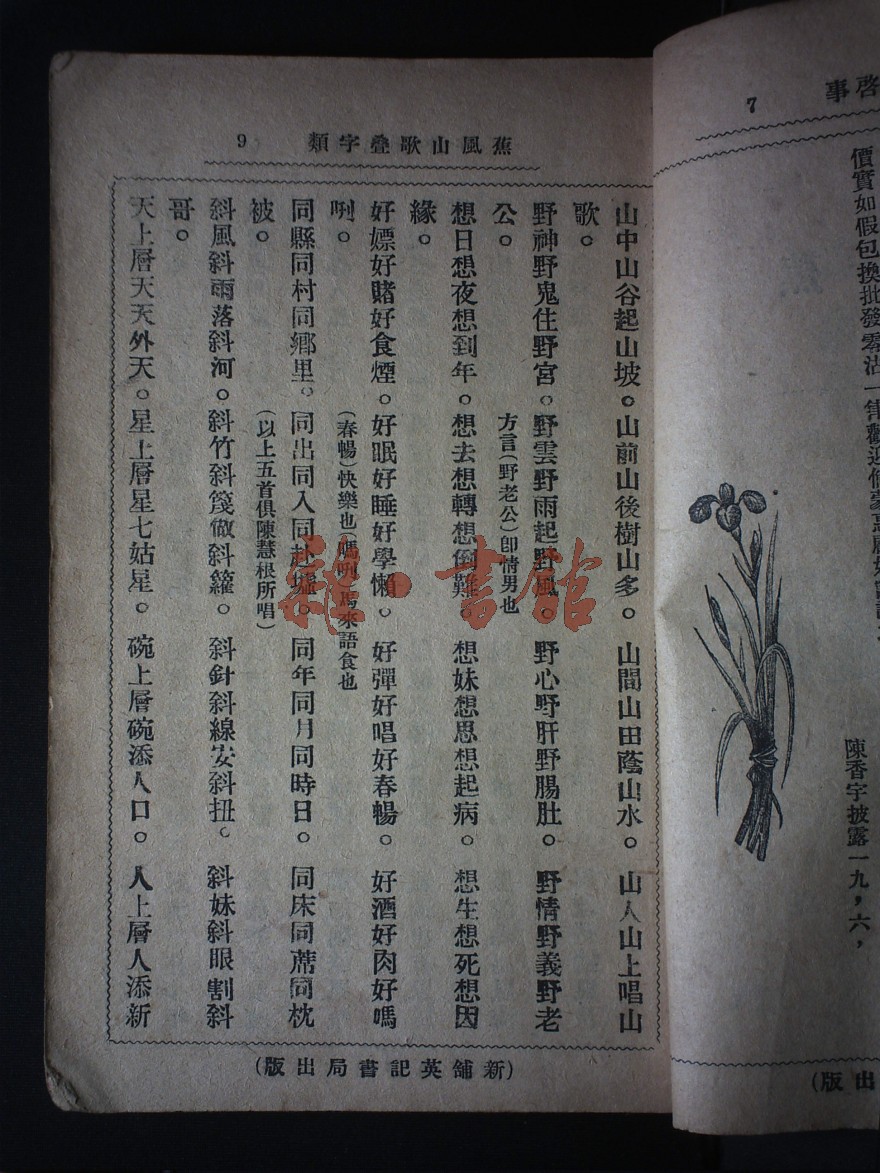 蕉風山歌疊字類 9
山中山谷起山坡。山前山後樹山多。山間山田蔭山水。山人山上唱山
歌。
野神野鬼住野宮。野雲野雨起野風。野心野肝野腸肚。野情野義野老
公。 方言(野老公)卽情男也
想日想夜想到年。想去想轉想倒難。想妹想思想起病。想生想死想因
緣。
好嫖好賭好食煙。好眠好睡好學懶。好彈好唱好春暢。好酒好肉好嗎
咧。 (春暢)快樂也(嗎咧)馬來語食也
同縣同村同鄉里。同出同入同赴墟。同年同月同時日。同床同蓆同枕
被。 (以上五首俱陳慧根所唱)
斜風斜雨落斜河。斜竹斜篾做斜籮。斜針斜線安斜扭。斜妹斜眼割斜
哥。
天上層天天外天。星上層星七姑星。碗上層碗添人口。人上層人添新
(新舖英記書局出版)
啓事 7
價實如假包換批發零沽一律歡迎
陳香宇披露一九,六,
出版)
雜·書館